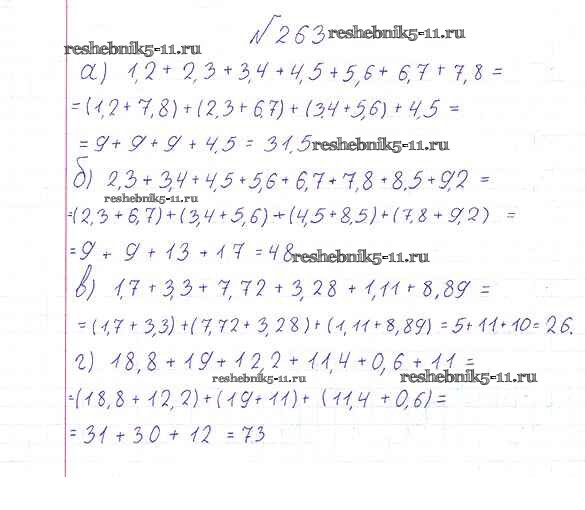 № 263 reshebnik5-11.ru
reshebnik5-11.ru
а) 1,2 + 2,3 + 3,4 + 4,5 + 5,6 + 6,7 + 7,8 =
= (1,2 + 7,8) + (2,3 + 6,7) + (3,4 + 5,6) + 4,5 =
= 9 + 9 + 9 + 4,5 = 31,5 reshebnik5-11.ru
б) 2,3 + 3,4 + 4,5 + 5,6 + 6,7 + 7,8 + 8,5 + 9,2 =
reshebnik5-11.ru
=(2,3 + 6,7) + (3,4 + 5,6) + (4,5 + 8,5) + (7,8 + 9,2) =
= 9 + 9 + 13 + 17 = 48 reshebnik5-11.ru
в) 1,7 + 3,3 + 7,72 + 3,28 + 1,11 + 8,89 =
= (1,7 + 3,3) + (7,72 + 3,28) + (1,11 + 8,89) = 5 + 11 + 10 = 26.
г) 18,8 + 19 + 12,2 + 11,4 + 0,6 + 11 =
reshebnik5-11.ru reshebnik5-11.ru
=(18,8 + 12,2) + (19 + 11) + (11,4 + 0,6) =
= 31 + 30 + 12 = 73